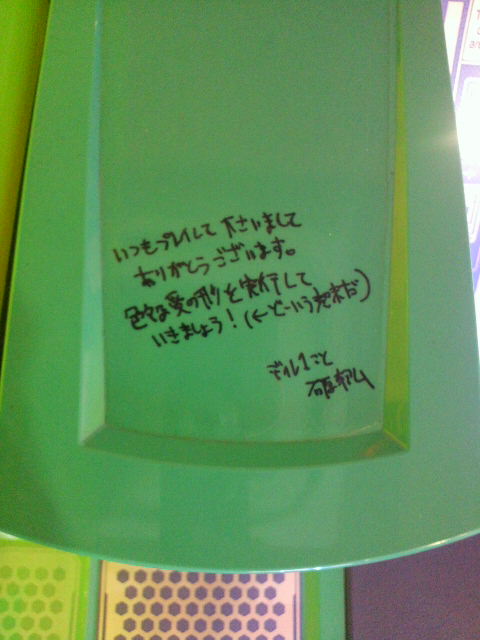 いつもプレイして下さいまして
ありがとうございます。
色々な愛の形を実行して
いきましょう!(←どーいう発末だ)
ディル1こと